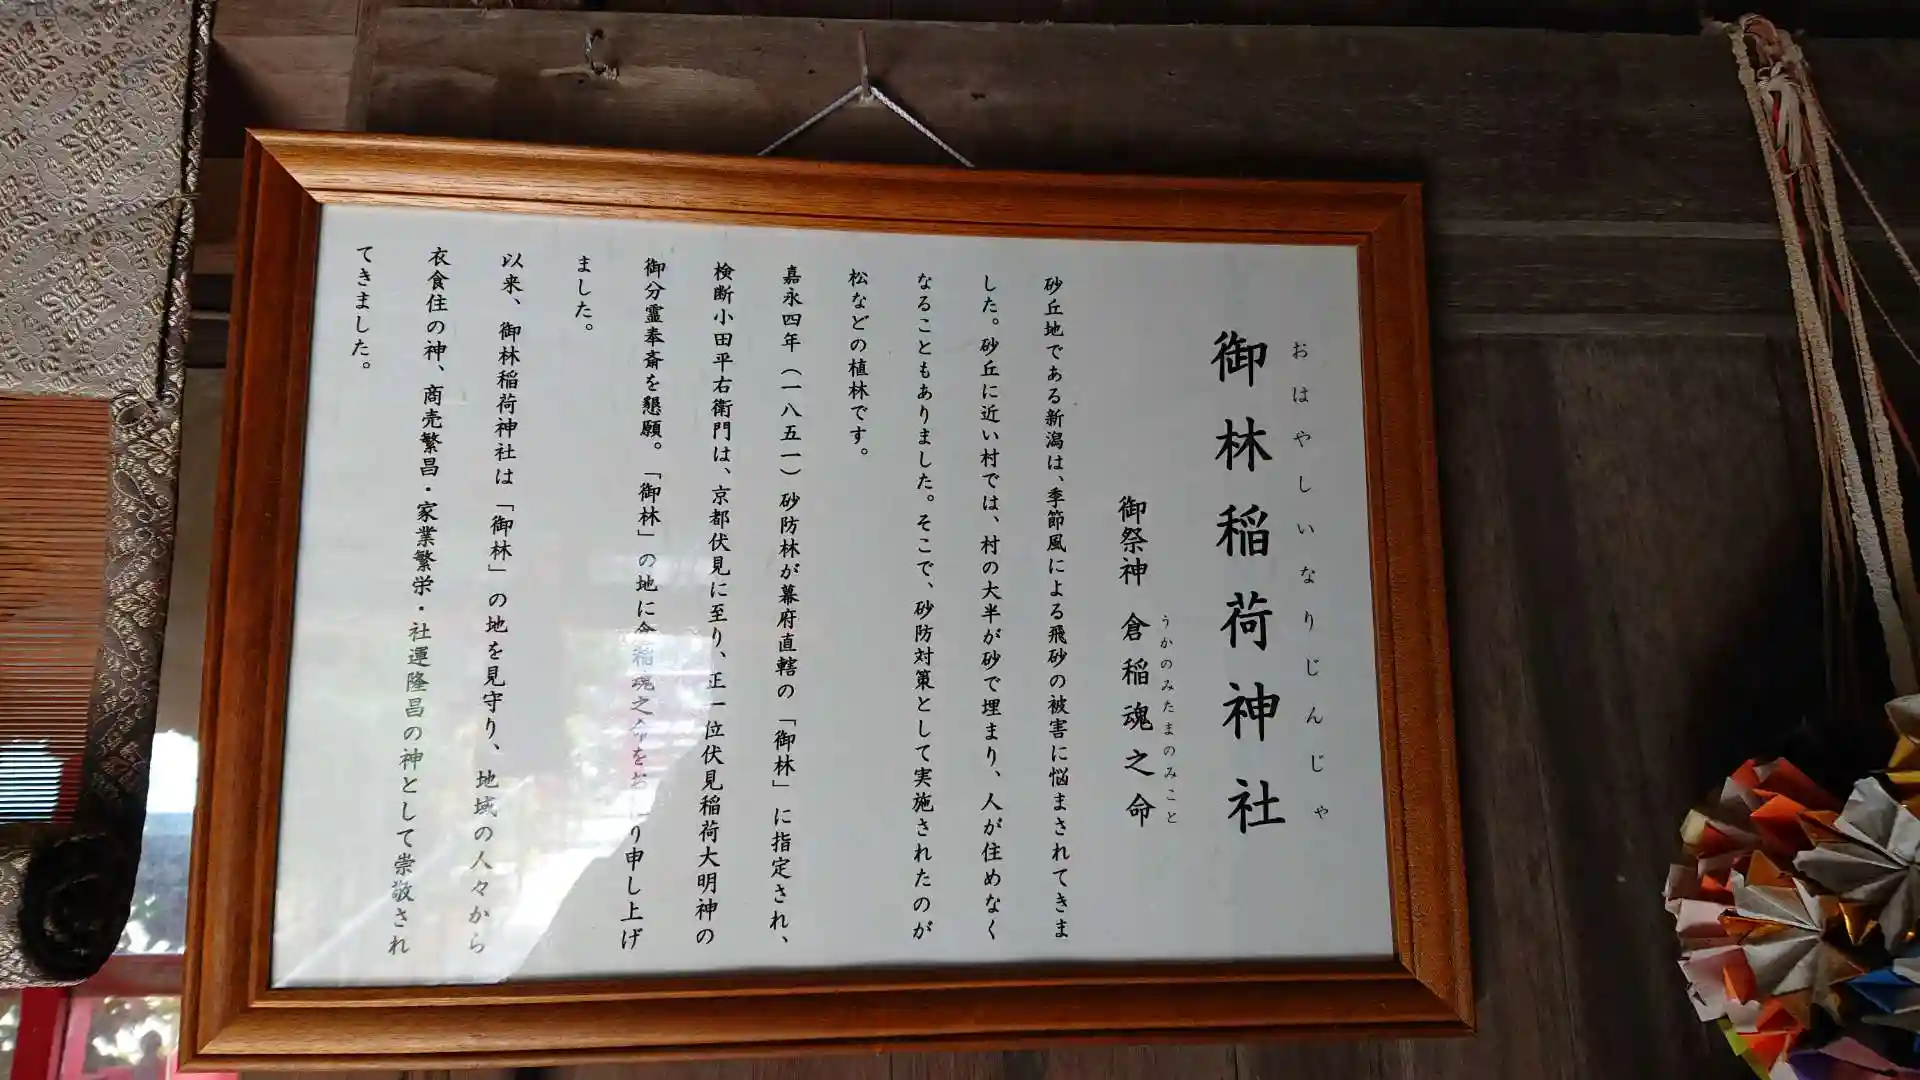 御林稲荷神社
おはやしいなりじんじゃ
御祭神 倉稲魂之命
うかのみたまのみこと
砂丘地である新潟は、季節風による飛砂の被害に悩まされてきま
した。砂丘に近い村では、村の大半が砂で埋まり、人が住めなく
なることもありました。そこで、砂防対策として実施されたのが
松などの植林です。
嘉永四年（一八五一）砂防林が幕府直轄の「御林」に指定され、
検断小田平右衛門は、京都伏見に至り、正一位伏見稲荷大明神の
御分霊奉斎を懇願。「御林」の地に倉稲魂之命をお り申し上げ
ました。
以来、御林稲荷神社は「御林」の地を見守り、地域の人々から
衣食住の神、商売繁昌・家業繁栄・社運隆昌の神として崇敬され
てきました。